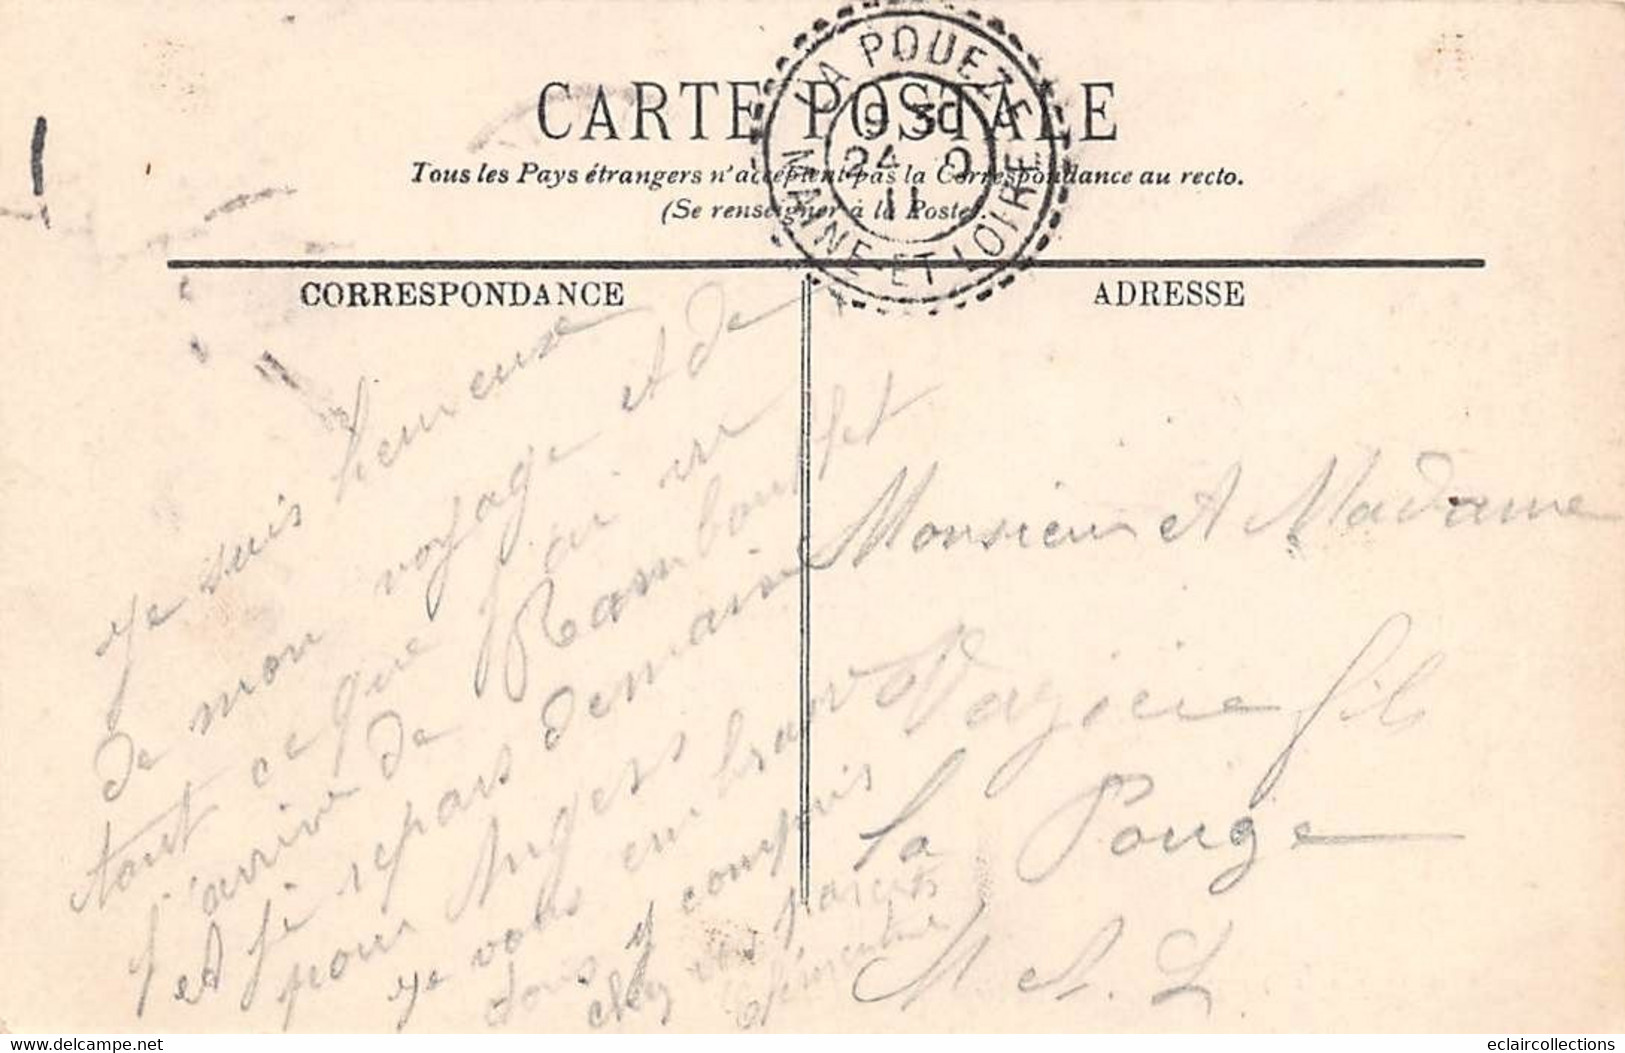 LA POUEZE
9 30
24 9
11
MAINE-ET-LOIRE
CARTE POSTALE
Tous les Pays étrangers n'acceptent pas la Correspondance au recto.
(Se renseigner à la Poste).
CORRESPONDANCE
ADRESSE
Je suis heureuse
de mon voyage et de
tout ce que j'ai vu
j'arrive de Rambouillet
et je repars demain
pour Angers
je vous embrasse
tous y compris
chez vos parents
Clémentine
Monsieur et Madame
fils
La Pouëze
M et L
www.delcampe.net
eclaircollections